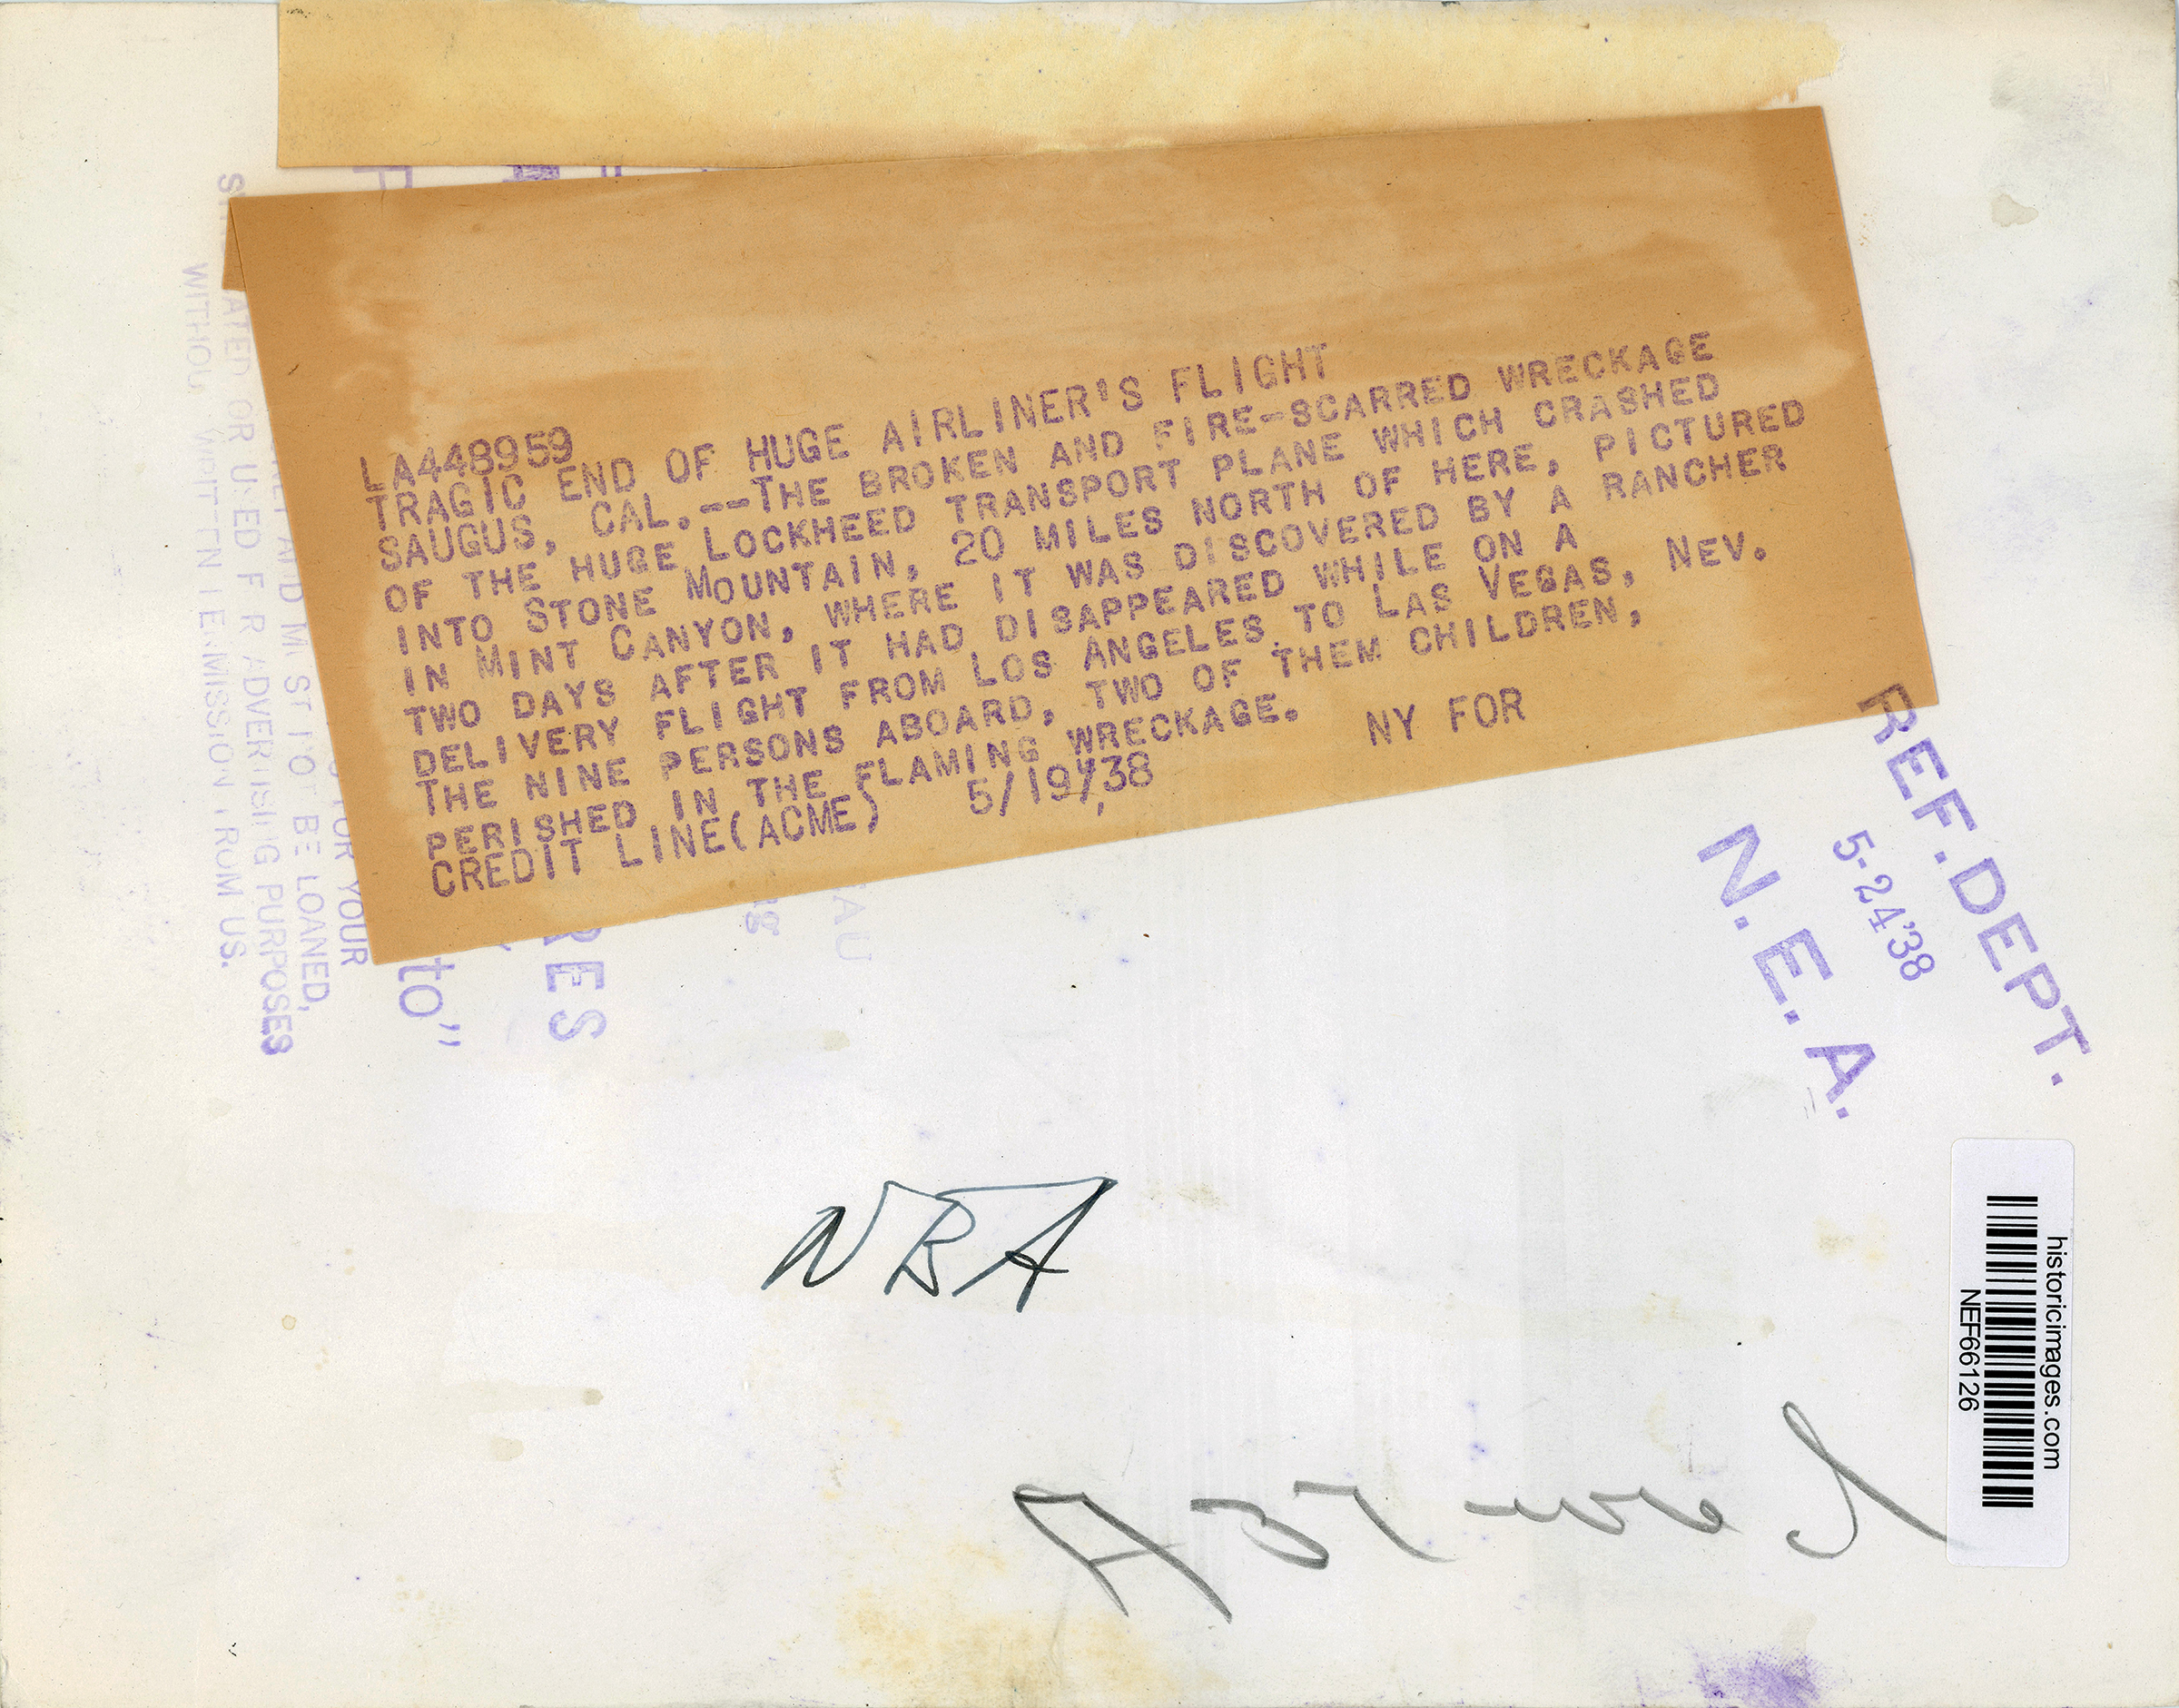 LA448959
TRAGIC END OF HUGE AIRLINER'S FLIGHT
SAUGUS, CAL.--THE BROKEN AND FIRE-SCARRED WRECKAGE
OF THE HUGE LOCKHEED TRANSPORT PLANE WHICH CRASHED
INTO STONE MOUNTAIN, 20 MILES NORTH OF HERE, PICTURED
IN MINT CANYON, WHERE IT WAS DISCOVERED BY A RANCHER
TWO DAYS AFTER IT HAD DISAPPEARED WHILE ON A
DELIVERY FLIGHT FROM LOS ANGELES TO LAS VEGAS, NEV.
THE NINE PERSONS ABOARD, TWO OF THEM CHILDREN,
PERISHED IN THE FLAMING WRECKAGE.
CREDIT LINE(ACME) 5/19/38 NY FOR
REF. DEPT.
5-24'38
N. E. A.
YOUR
AND MUST NOT BE LOANED,
OR USED FOR ADVERTISING PURPOSES
WITHOUT WRITTEN PERMISSION FROM US.
to"
historicimages.com
NEF66126